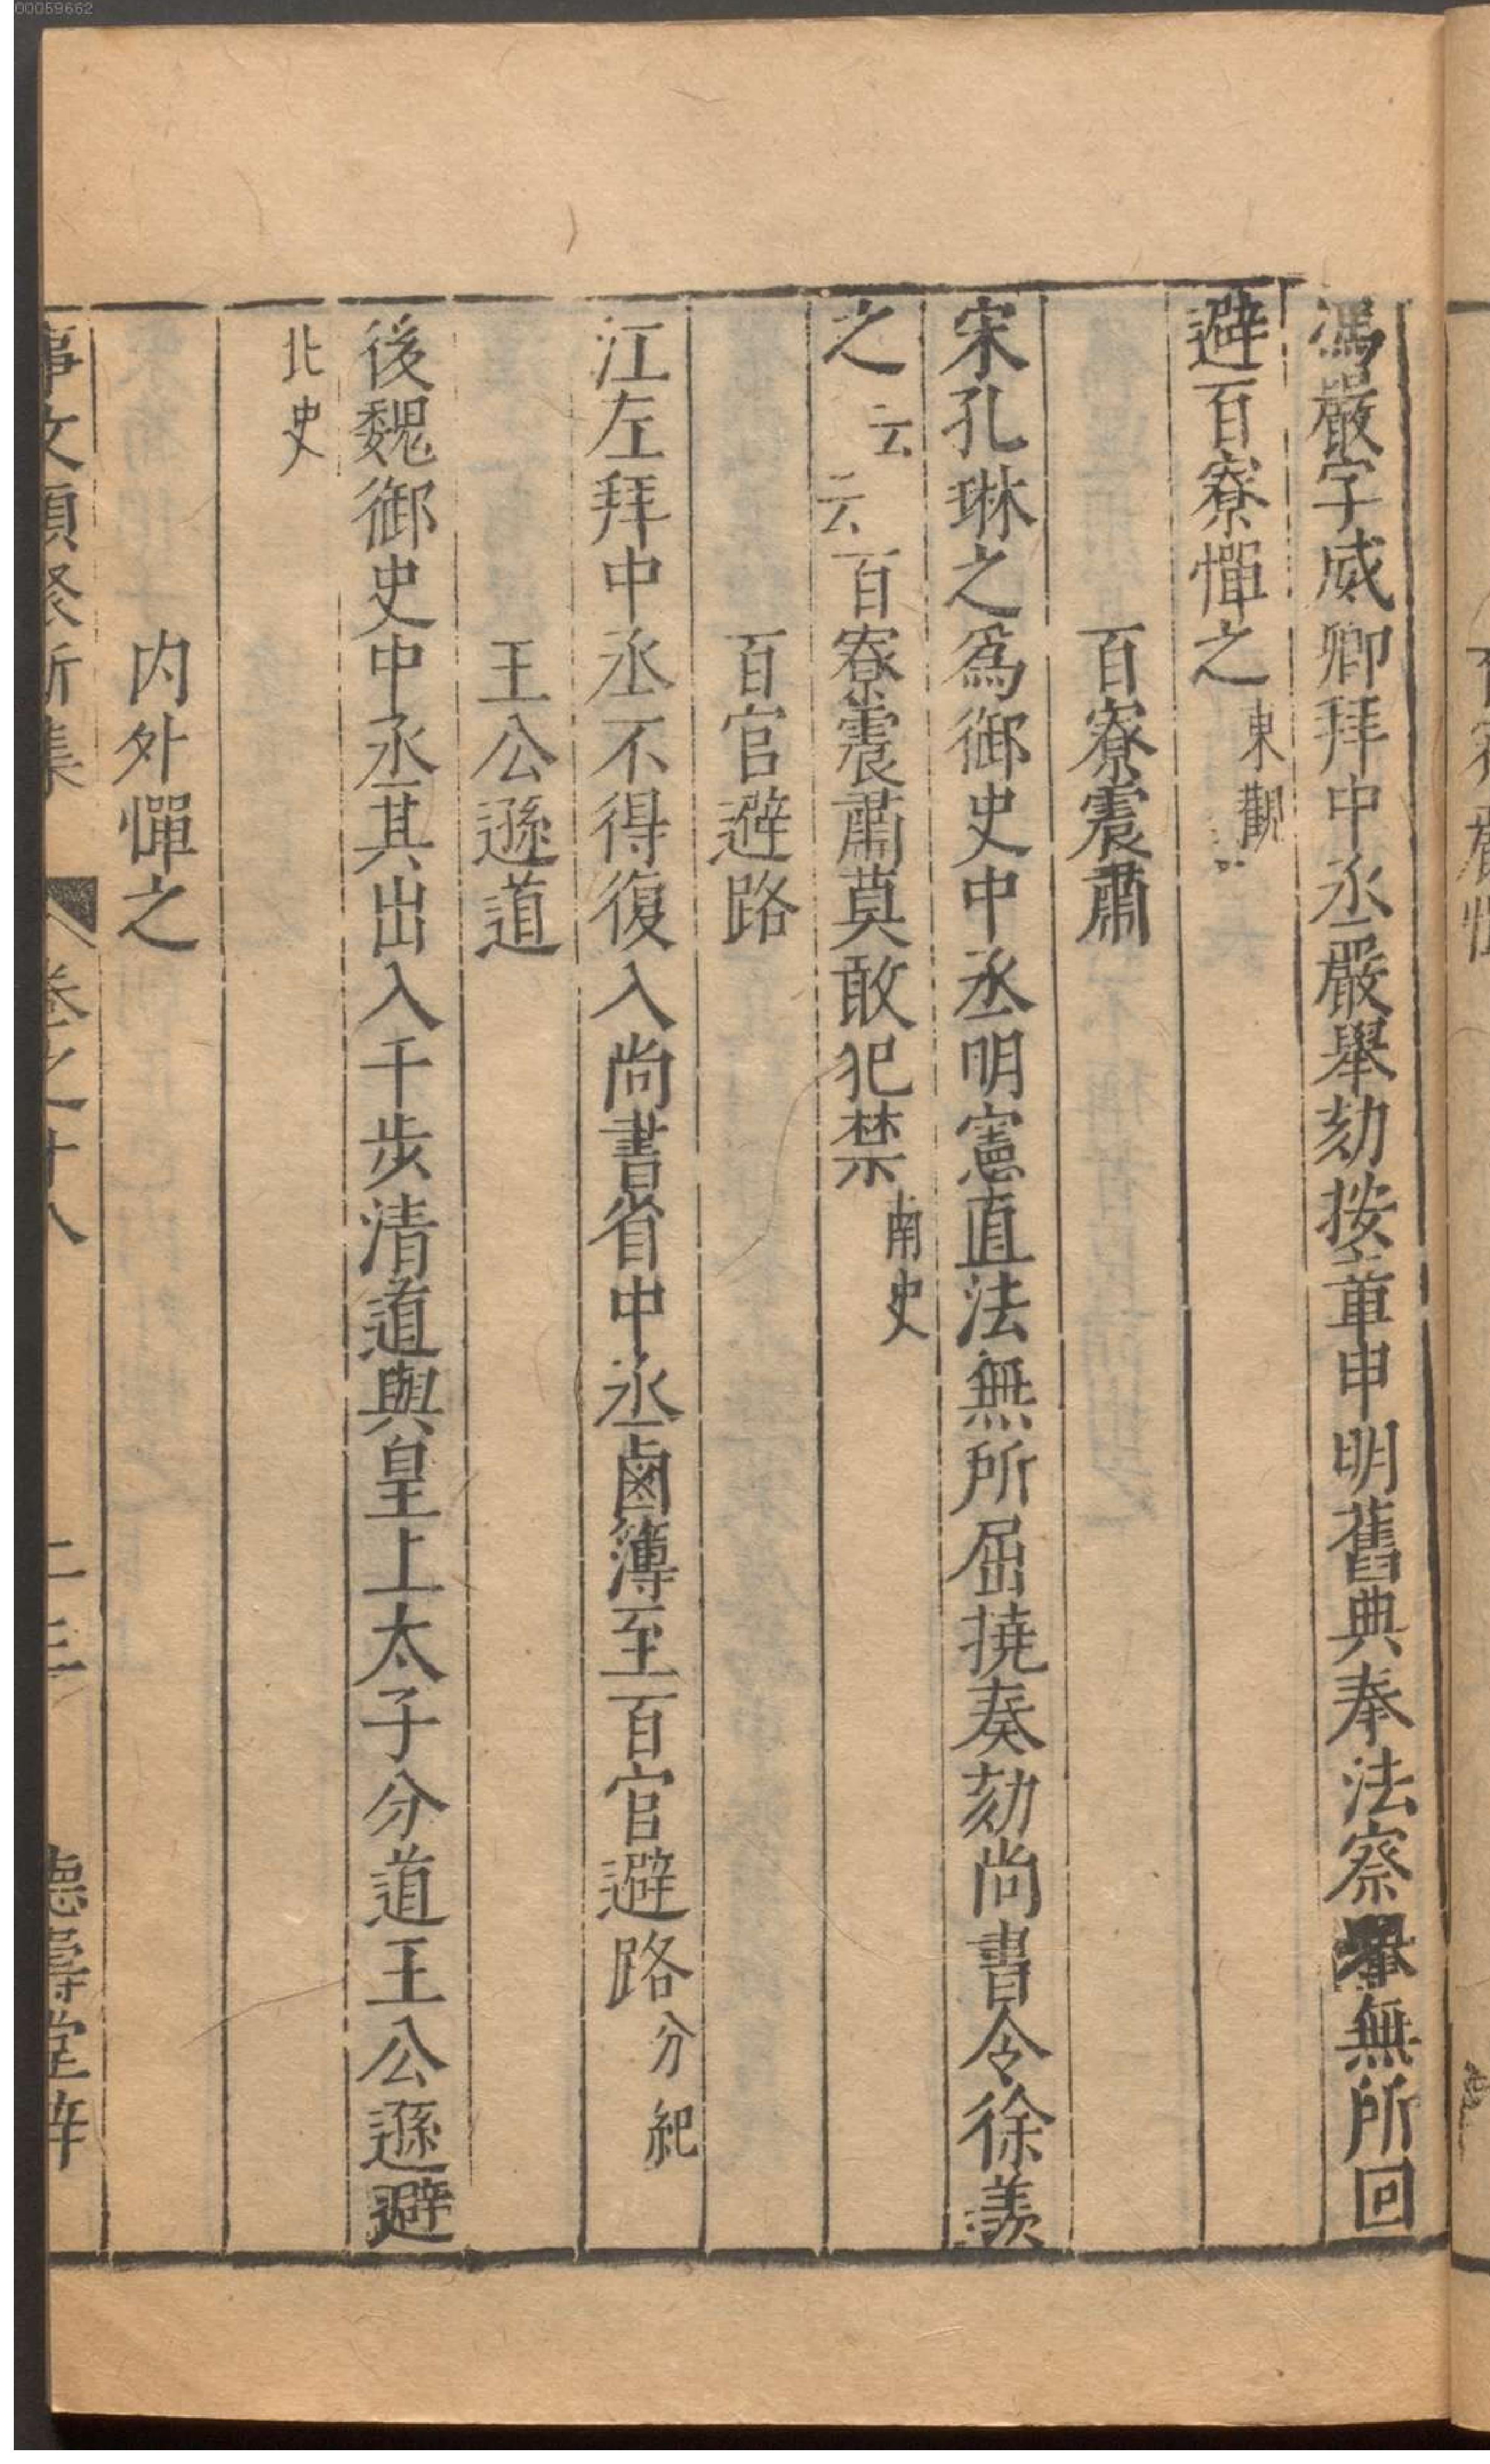 00059662
馮嚴字威卿拜中丞嚴舉劾按章申明舊典奉法察舉無所回
避百寮憚之東觀
百寮震肅
宋孔琳之爲御史中丞明憲直法無所屈撓奏劾尚書令徐羨
之云云百寮震肅莫敢犯禁南史
百官避路
江左拜中丞不得復入尚書省中丞鹵簿至百官避路分紀
王公遜道
後魏御史中丞其出入千步清道與皇上太子分道王公遜避
北史
内外憚之
事文類聚新集 卷之十八 二三 德壽堂梓